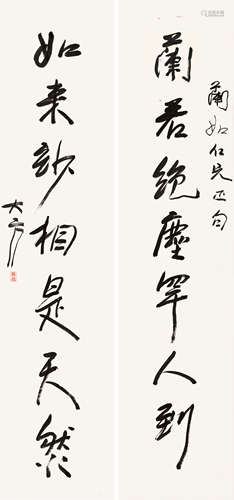 蘭如仁兄正句
蘭若絕塵罕人到
如來玅相是天然